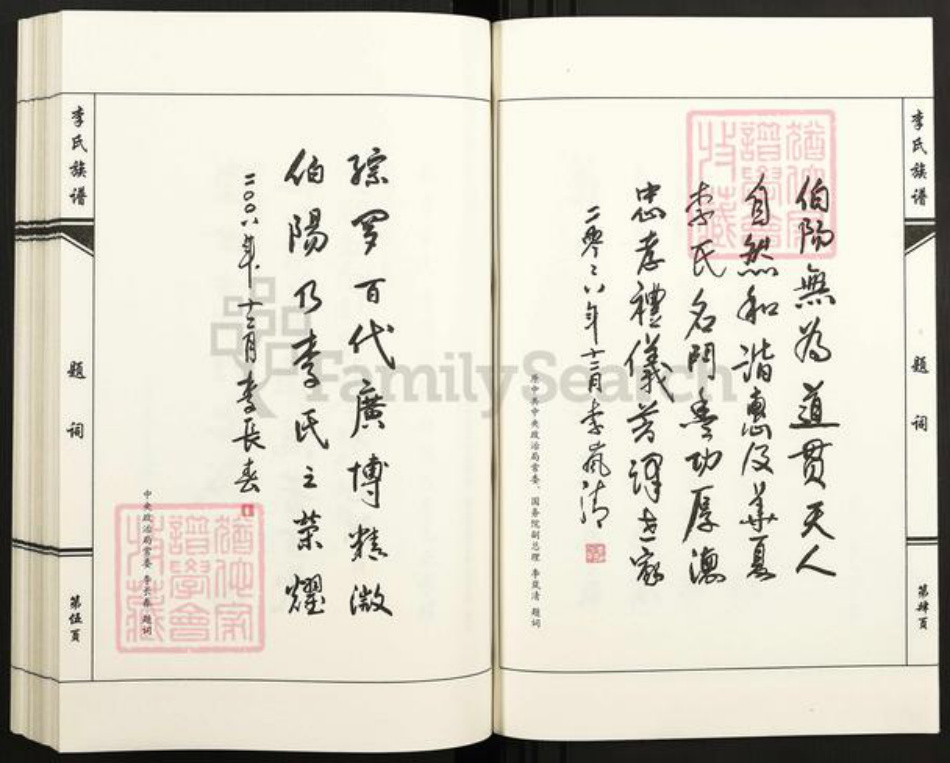 李氏族谱
题词
第肆頁
伯陽無為道貫天人
自然和諧惠及華夏
李氏名門豊功厚德
忠孝禮儀芳譯世家
二零零八年十二月李嵐清
原中共中央政治局常委、国务院副总理 李岚清 题词
綜罗百代廣博精微
伯陽乃李氏之荣耀
二〇〇八年十二月李長春
中央政治局常委 李长春 题词
李氏族谱
题词
第伍頁
譜學會
收藏
FamilySearch